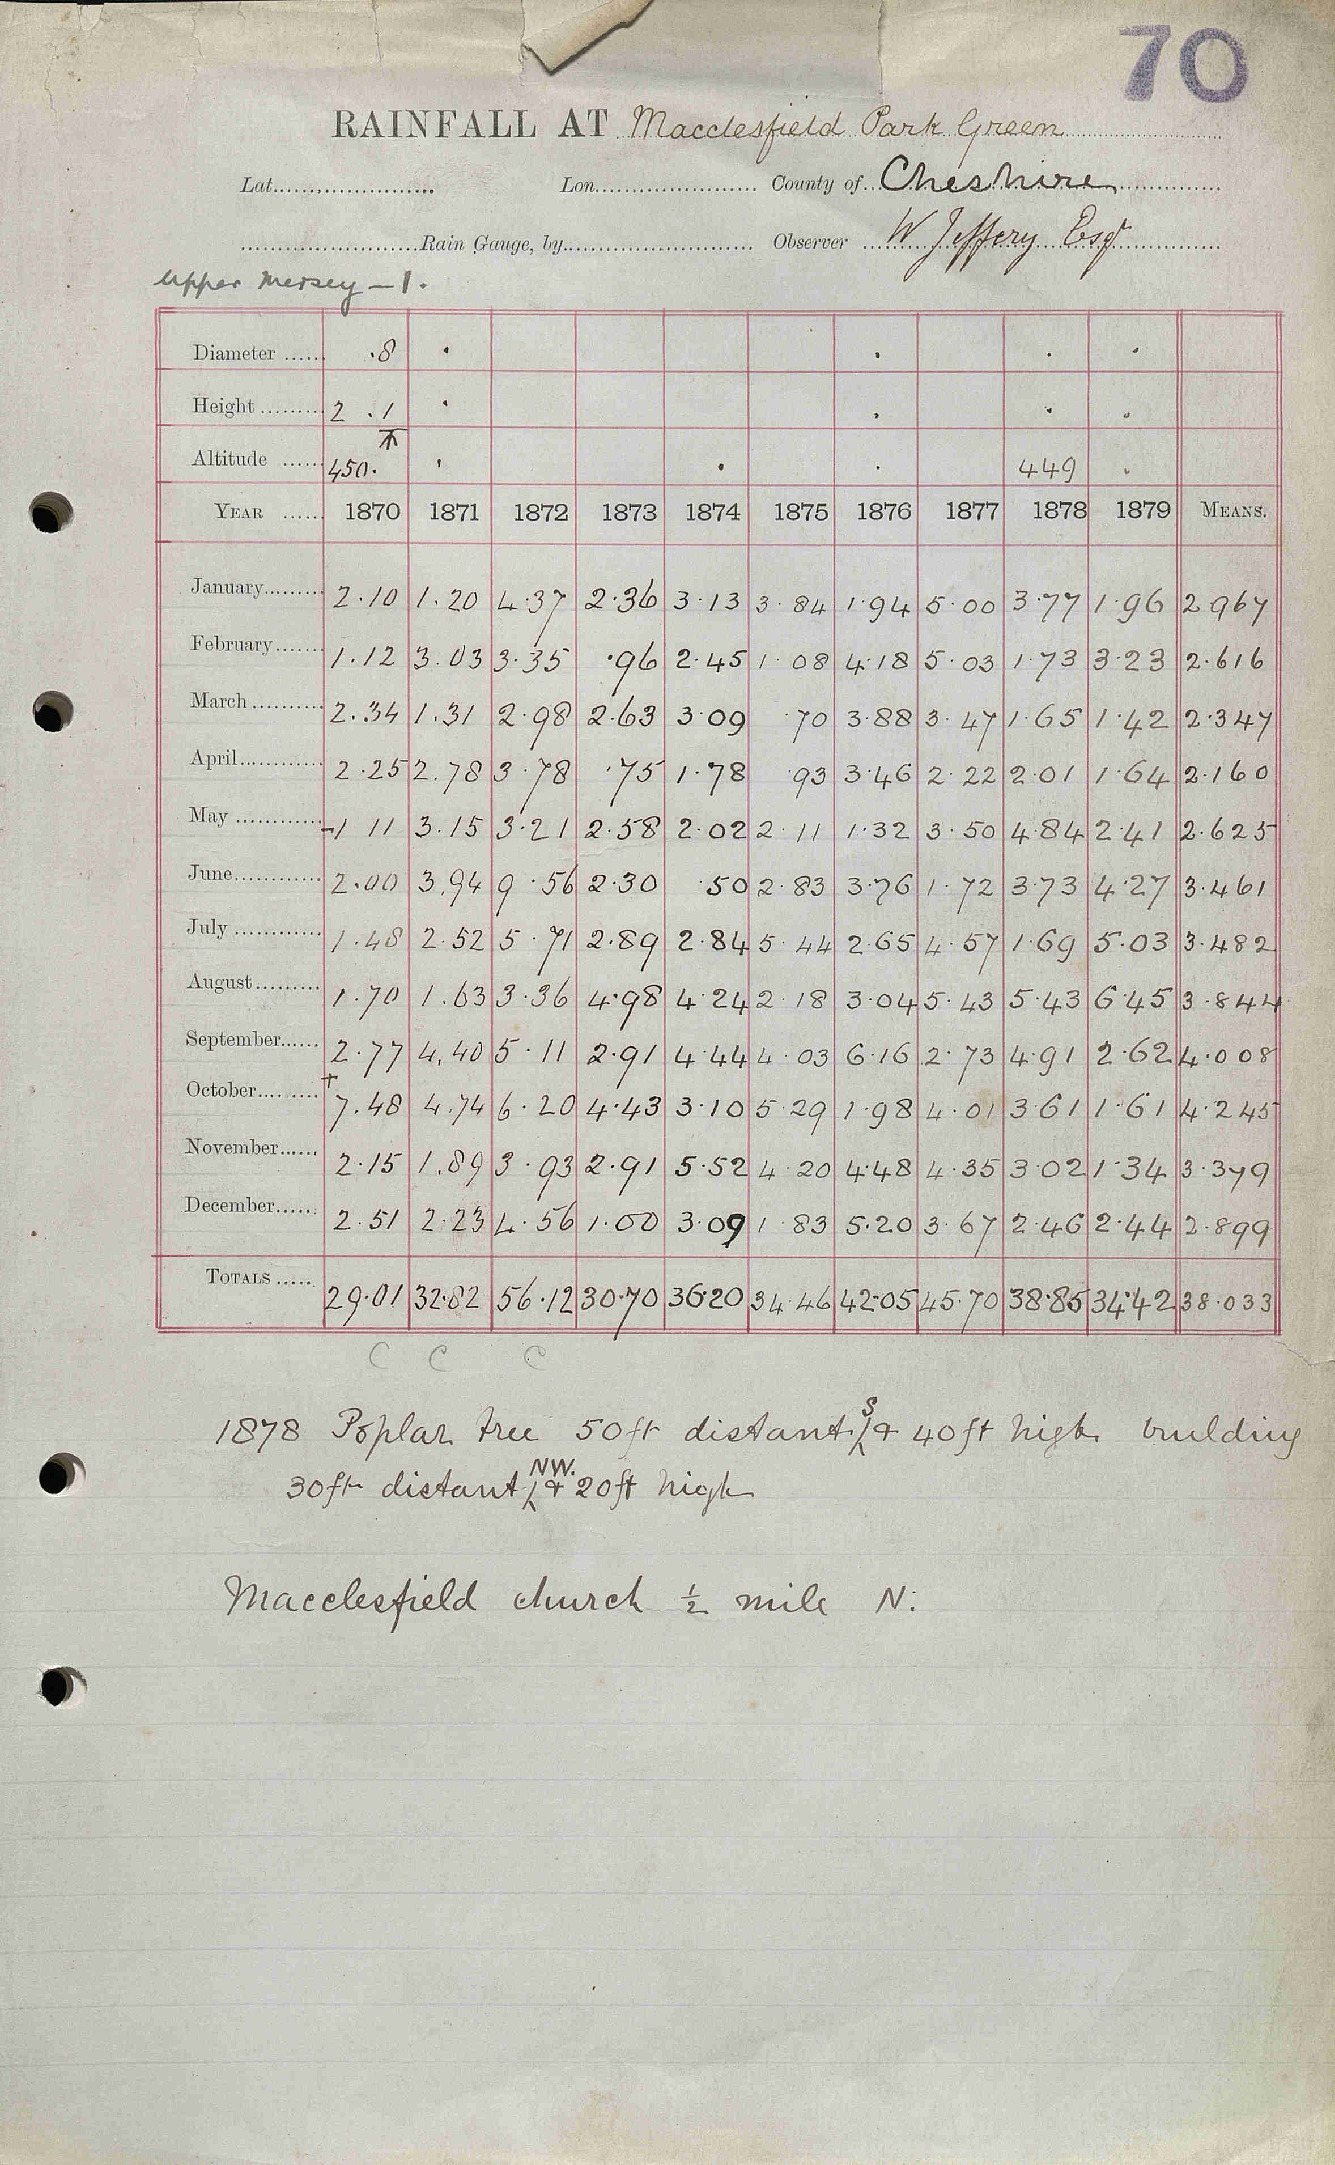 70
RAINFALL AT Macclesfield Park Green
Lat. Lon. County of Cheshire
Rain Gauge, by Observer W Jeffery Esqr
Upper Mersey — 1.
Diameter ...... .8 . . . .
Height ......... 2 .1 . . . .
Altitude ...... 450. . . . 449 .
YEAR ...... 1870 1871 1872 1873 1874 1875 1876 1877 1878 1879 MEANS.
January......... 2.10 1.20 4.37 2.36 3.13 3.84 1.94 5.00 3.77 1.96 2.967
February....... 1.12 3.03 3.35 .96 2.45 1.08 4.18 5.03 1.73 3.23 2.616
March.......... 2.34 1.31 2.98 2.63 3.09 .70 3.88 3.47 1.65 1.42 2.347
April............ 2.25 2.78 3.78 .75 1.78 .93 3.46 2.22 2.01 1.64 2.160
May ............ 1 11 3.15 3.21 2.58 2.02 2.11 1.32 3.50 4.84 2.41 2.625
June............ 2.00 3.94 9.56 2.30 .50 2.83 3.76 1.72 3.73 4.27 3.461
July ............ 1.48 2.52 5.71 2.89 2.84 5.44 2.65 4.57 1.69 5.03 3.482
August......... 1.70 1.63 3.36 4.98 4.24 2.18 3.04 5.43 5.43 6.45 3.844
September...... 2.77 4.40 5.11 2.91 4.44 4.03 6.16 2.73 4.91 2.62 4.008
October......... +7.48 4.74 6.20 4.43 3.10 5.29 1.98 4.01 3.61 1.61 4.245
November...... 2.15 1.89 3.93 2.91 5.52 4.20 4.48 4.35 3.02 1.34 3.379
December...... 2.51 2.23 4.56 1.00 3.09 1.83 5.20 3.67 2.46 2.44 2.899
TOTALS ..... 29.01 32.82 56.12 30.70 36.20 34.46 42.05 45.70 38.85 34.42 38.033
C C C
1878 Poplar tree 50ft distant S & 40ft high building
30ft distant NW. & 20ft high
Macclesfield church ½ mile N.